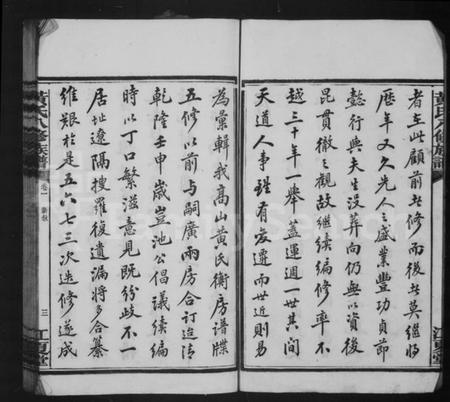 黃氏八修族譜
者在此顧前者修而後者莫繼將
歷年又久先人之盛業豐功貞節
懿行與夫生沒葬向仍無以資後
昆貫徹之觀故繼續編修率不
越三十年一舉蓋運週一世其間
天道人事理有必遷而世近則易
為彙輯我高山黃氏衡房譜牒
五修以前与嗣廣兩房合訂迨清
乾隆壬申歲豈池公倡議續編
時以丁口繁滋意見既紛歧不一
居址遼隔搜羅復遺漏將多合纂
維艱於是五六七三次迭修遂成
黃氏八修族譜
卷一
三
江夏堂